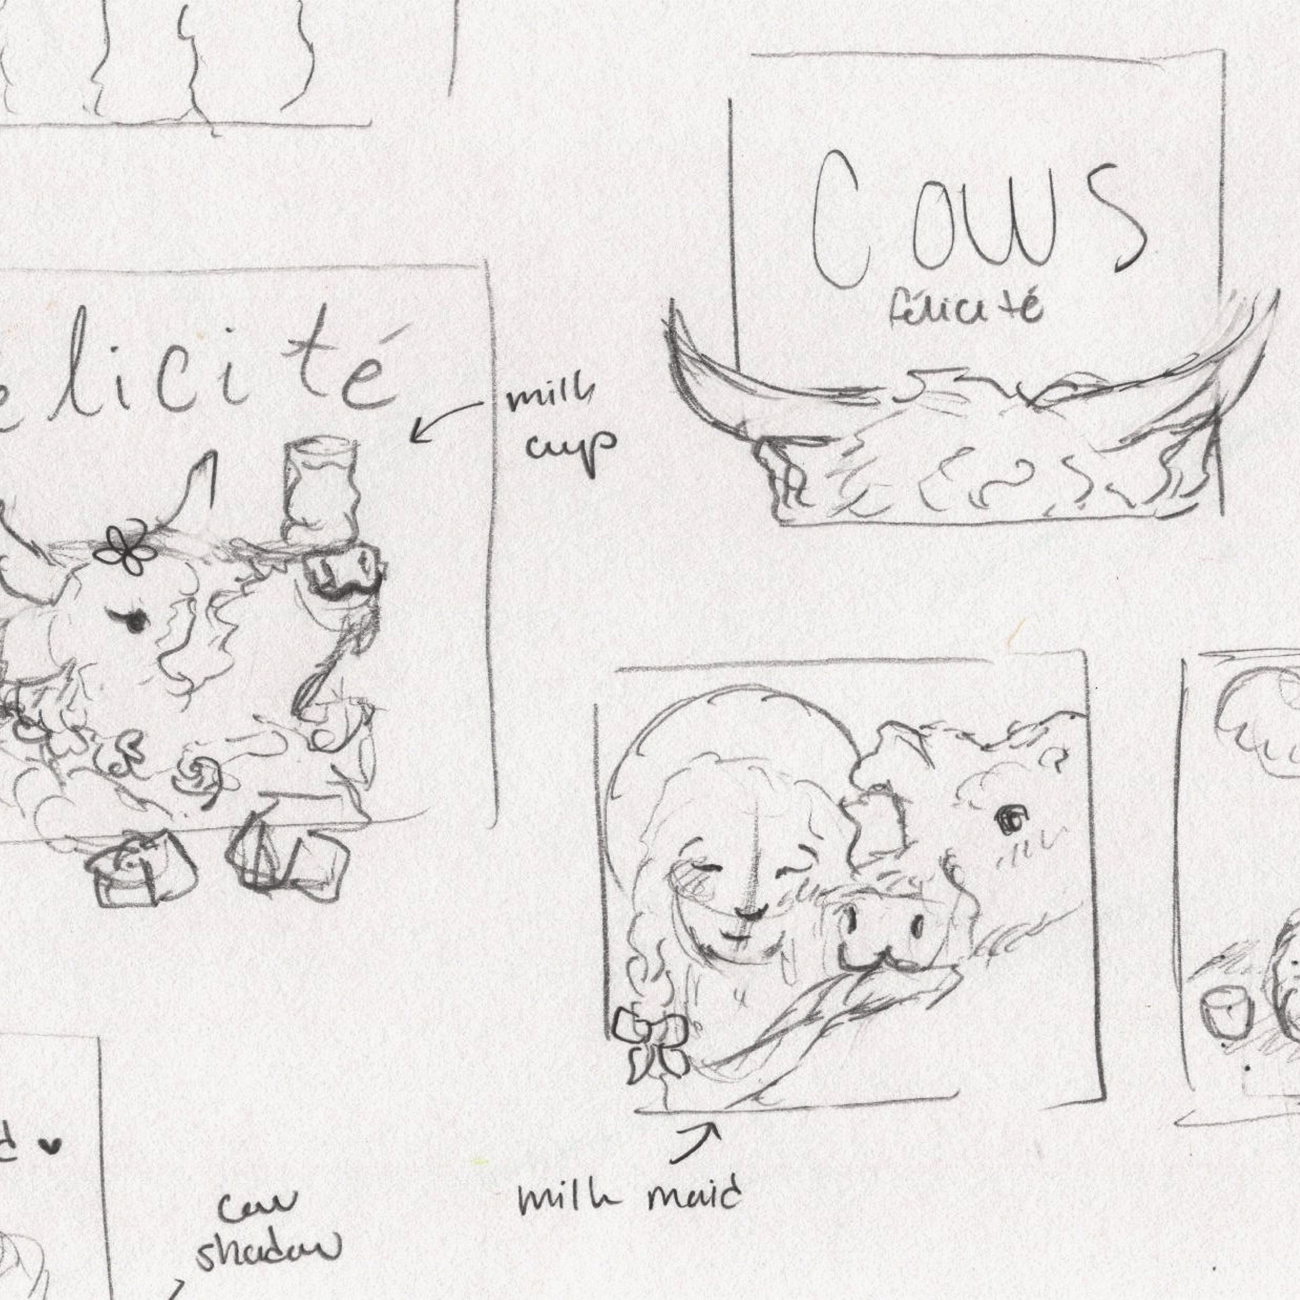 Cows
félicité
elicité
milk
cup
milk maid
d ♥
cow
shadow